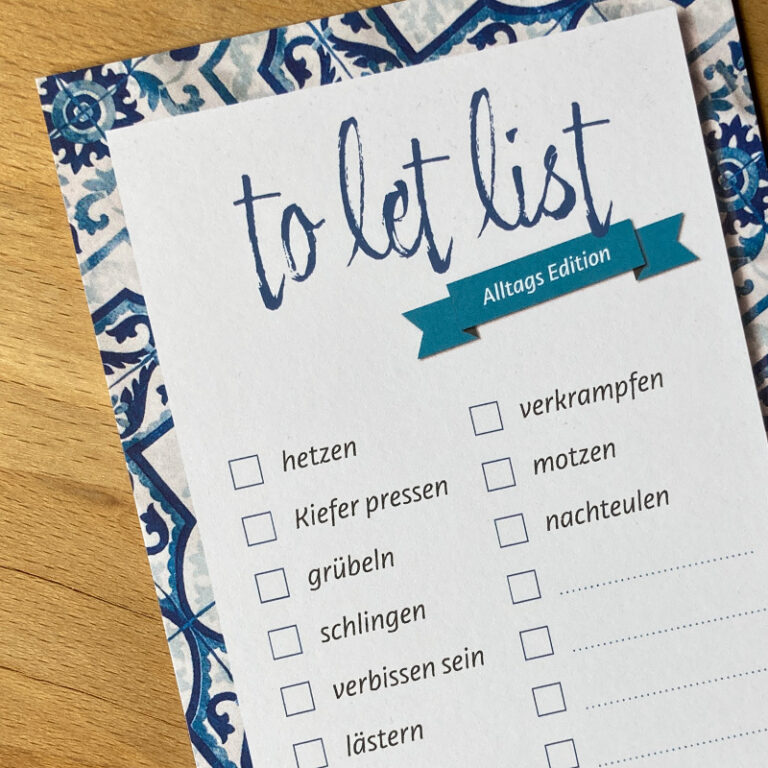 to let list
Alltags Edition
hetzen
Kiefer pressen
grübeln
schlingen
verbissen sein
lästern
verkrampfen
motzen
nachteulen